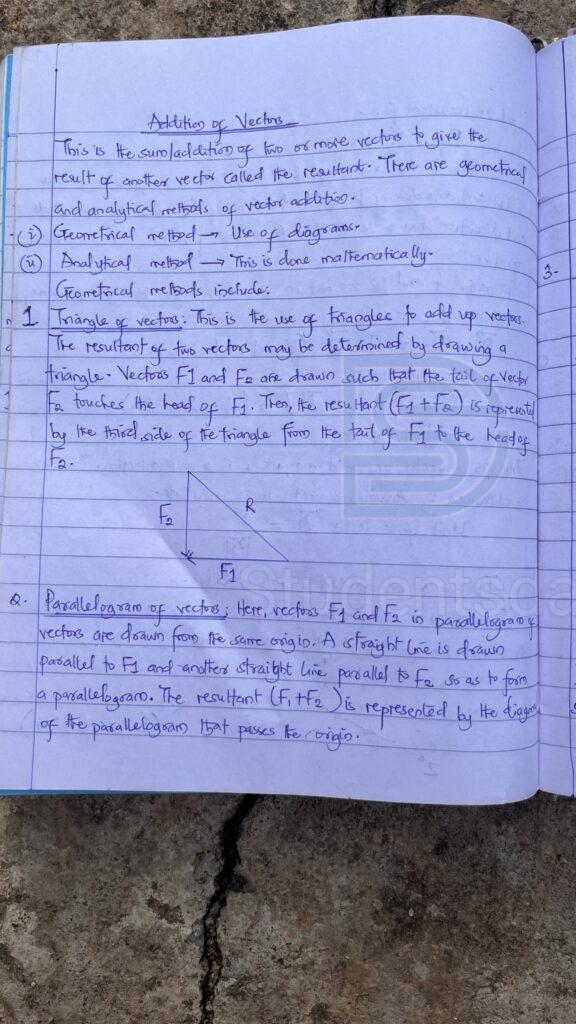 Addition of Vectors
This is the sum/addition of two or more vectors to give the
result of another vector called the resultant. There are geometrical
and analytical methods of vector addition.
(i) Geometrical method → Use of diagrams.
(ii) Analytical method → This is done mathematically.
3-
Geometrical methods include:
1 Triangle of vectors: This is the use of triangles to add up vectors.
The resultant of two vectors may be determined by drawing a
triangle. Vectors F1 and F2 are drawn such that the tail of vector
F2 touches the head of F1. Then, the resultant (F1 + F2) is represented
by the third side of the triangle from the tail of F1 to the head of
F2.
F2
R
F1
2. Parallelogram of vectors: Here, vectors F1 and F2 in parallelogram of
vectors are drawn from the same origin. A straight line is drawn
parallel to F1 and another straight line parallel to F2 so as to form
a parallelogram. The resultant (F1+F2) is represented by the
of the parallelogram that passes the origin.